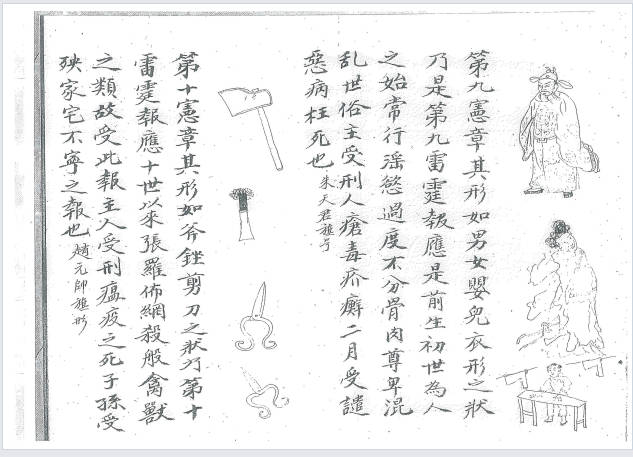 第九憲章其形如男女嬰兒衣形之狀
乃是第九雷霆報應是前生初世為人
之始常行滛慾過度不分骨肉尊卑混
乱世俗主受刑人瘡毒疥癬二月受譴
惡病枉死也朱天君旗号
第十憲章其形如斧銼剪刀之狀乃第十
雷霆報應十世以來張羅佈網殺般禽獸
之類故受此報主人受刑瘟疫之死子孫受
殃家宅不寧之報也趙元帥旗形